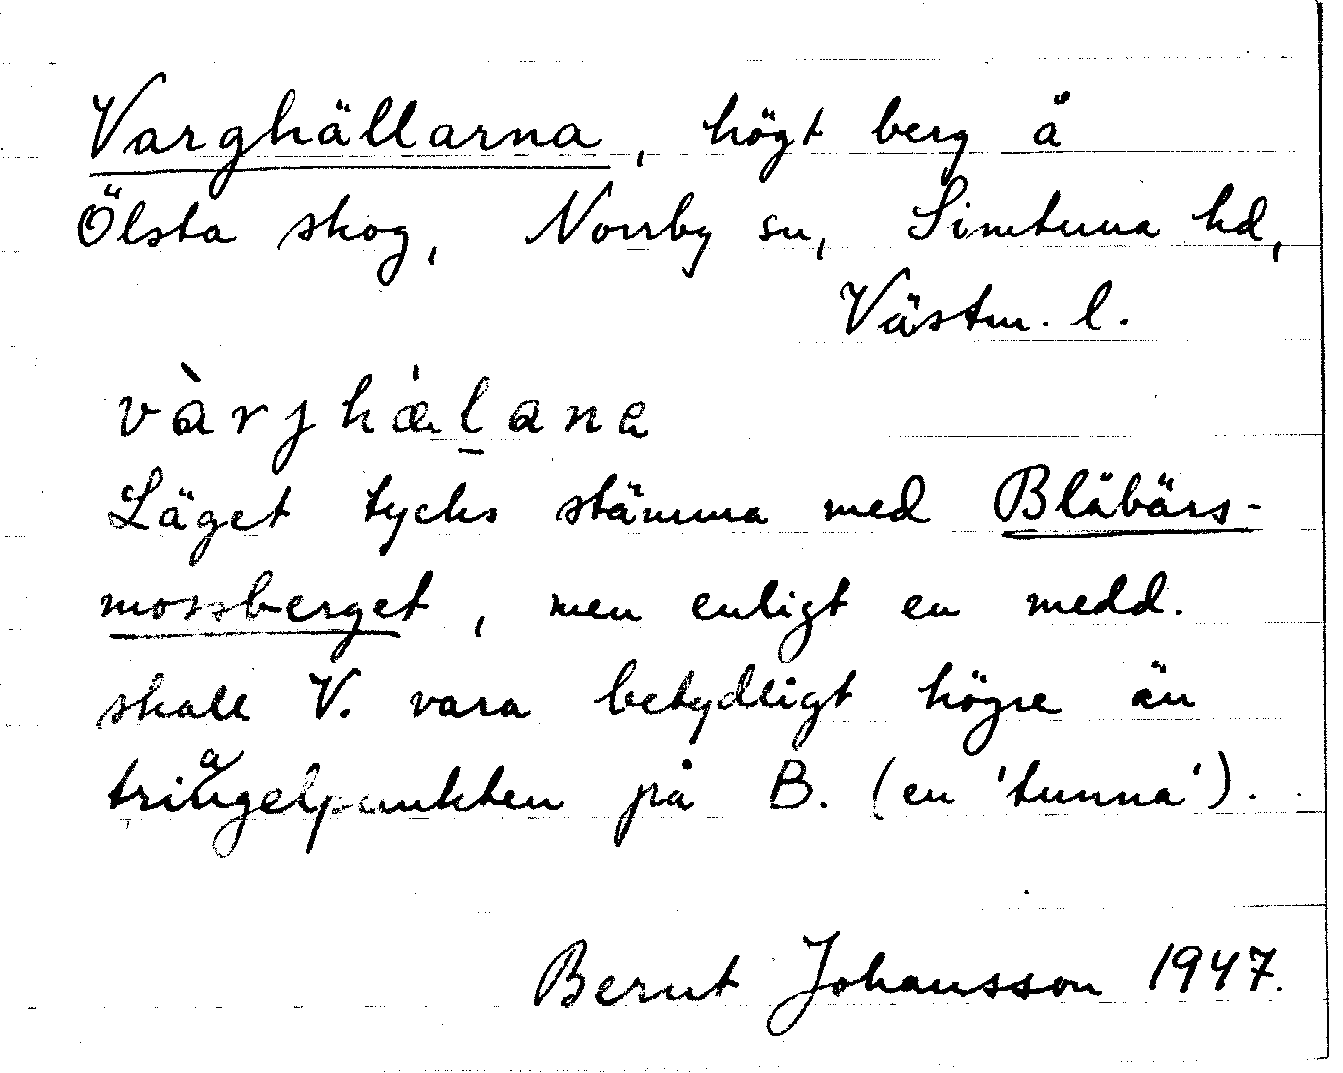 Varghällarna, högt berg å
Ölsta skog, Norrby sn, Simtuna hd,
Västm. l.
vàrjhæ̍l̠ana
Läget tycks stämma med Blåbärs-
mossberget, men enligt en medd.
skall V. vara betydligt högre än
triangelpunkten på B. (en 'tunna').
Bernt Johansson 1947.